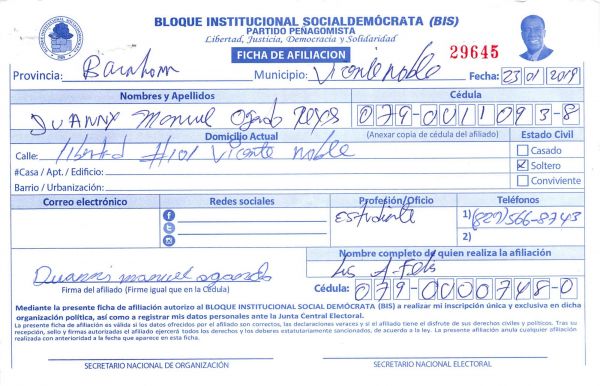 BLOQUE INSTITUCIONAL SOCIALDEMÓCRATA (BIS)
PARTIDO PEÑAGOMISTA
Libertad, Justicia, Democracia y Solidaridad
FICHA DE AFILIACION
29645
Provincia: Barahona Municipio: Vicente noble Fecha: 23 01 2019
Nombres y Apellidos Cédula
DUANNY Manuel Ogando Reyes 079-0011093-8
Domicilio Actual (Anexar copia de cédula del afiliado) Estado Civil
Calle: libertad #101 Vicente noble Casado
#Casa / Apt. / Edificio: Soltero
Barrio / Urbanización: Conviviente
Correo electrónico Redes sociales Profesión/Oficio Teléfonos
Estudiante 1) (829) 566-8743
2)
Nombre completo de quien realiza la afiliación
Duanni manuel ogando Luis A. Felis
Firma del afiliado (Firme igual que en la Cédula) Cédula: 079-0000748-0
Mediante la presente ficha de afiliación autorizo al BLOQUE INSTITUCIONAL SOCIAL DEMÓCRATA (BIS) a realizar mi inscripción única y exclusiva en dicha
organización política, así como a registrar mis datos personales ante la Junta Central Electoral.
La presente ficha de afiliación es válida si los datos ofrecidos por el afiliado son correctos, las declaraciones veraces y si el afiliado tiene el disfrute de sus derechos civiles y políticos. Tras su
recepción, sello y firmas autorizadas el afiliado ejercerá todos los derechos y los deberes estatutariamente sancionados, de acuerdo a la ley. La presente afiliación anula cualquier afiliación
realizada con anterioridad a la fecha que aparece en esta ficha.
SECRETARIO NACIONAL DE ORGANIZACIÓN SECRETARIO NACIONAL ELECTORAL